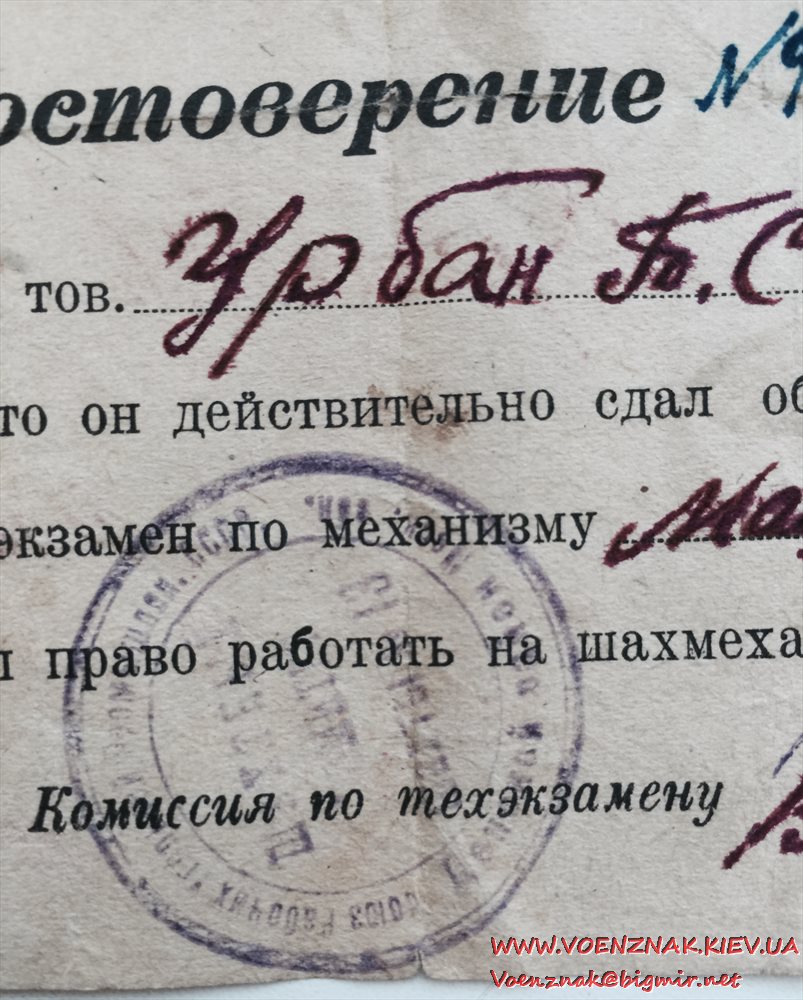 остоверение №9
тов. Урбан Т. С
то он действительно сдал об
экзамен по механизму Ма
право работать на шахмеха
Комиссия по техэкзамену
Союз Рабочих
СССР
WWW.VOENZNAK.KIEV.UA
Voenznak@bigmir.net